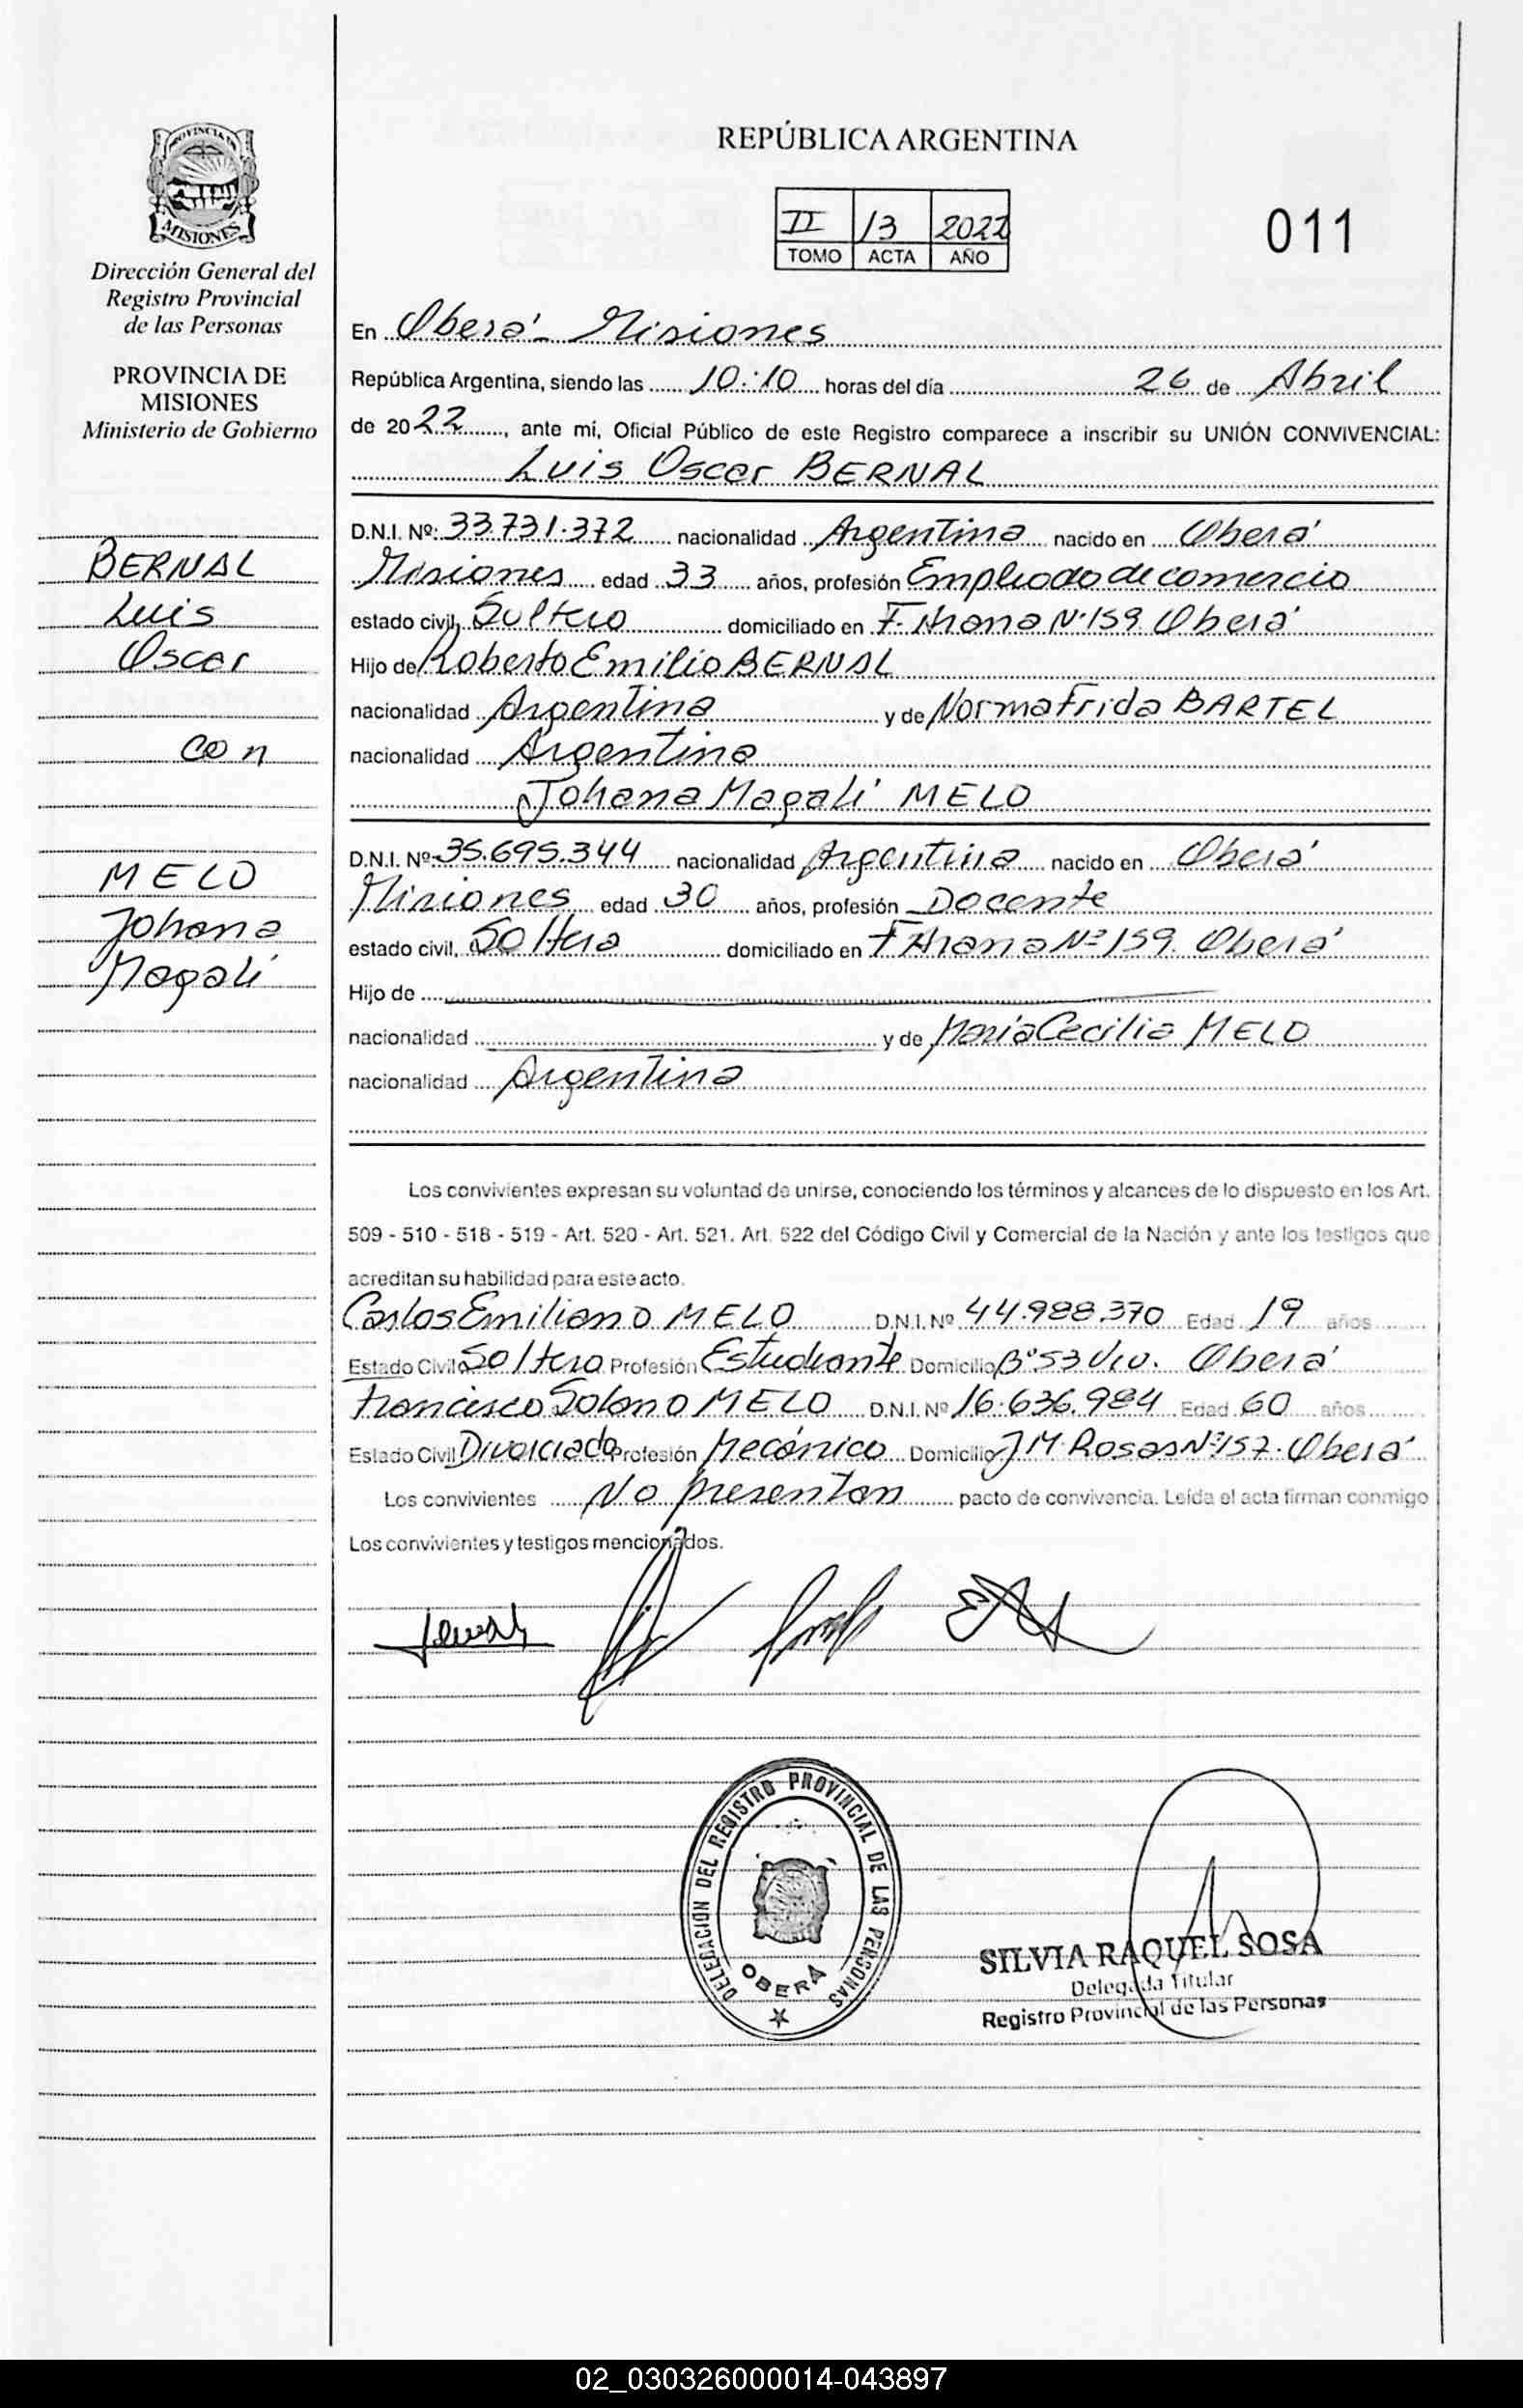 PROVINCIA DE
MISIONES
Dirección General del
Registro Provincial
de las Personas
PROVINCIA DE
MISIONES
Ministerio de Gobierno
BERNAL
Luis
Oscar
con
MELO
Johana
Magalí
REPÚBLICA ARGENTINA
II 13 2022
TOMO ACTA AÑO
011
En Oberá - Misiones
República Argentina, siendo las 10:10 horas del día 26 de Abril
de 2022, ante mí, Oficial Público de este Registro comparece a inscribir su UNIÓN CONVIVENCIAL:
Luis Oscar BERNAL
D.N.I. Nº: 33.731.372 nacionalidad Argentina nacido en Oberá
Misiones edad 33 años, profesión Empleado de comercio
estado civil, Soltero domiciliado en F. Arana Nº 159 Oberá
Hijo de Roberto Emilio BERNAL
nacionalidad Argentina y de Norma Frida BARTEL
nacionalidad Argentina
Johana Magalí MELO
D.N.I. Nº 35.695.344 nacionalidad Argentina nacido en Oberá
Misiones edad 30 años, profesión Docente
estado civil, Soltera domiciliado en F Arana Nº 159. Oberá
Hijo de
nacionalidad y de María Cecilia MELO
nacionalidad Argentina
Los convivientes expresan su voluntad de unirse, conociendo los términos y alcances de lo dispuesto en los Art.
509 - 510 - 518 - 519 - Art. 520 - Art. 521. Art. 522 del Código Civil y Comercial de la Nación y ante los testigos que
acreditan su habilidad para este acto.
Carlos Emiliano MELO D.N.I. Nº 44.988.370 Edad 19 años
Estado Civil Soltero Profesión Estudiante Domicilio Bº 53 Viv. Oberá
Francisco Solano MELO D.N.I. Nº 16.636.984 Edad 60 años
Estado Civil Divorciado Profesión Mecánico Domicilio J M Rosas Nº 157. Oberá
Los convivientes No presentan pacto de convivencia. Leída el acta firman conmigo
Los convivientes y testigos mencionados.
DELEGACIÓN DEL REGISTRO PROVINCIAL DE LAS PERSONAS
OBERÁ
SILVIA RAQUEL SOSA
Delegada Titular
Registro Provincial de las Personas
02_030326000014-043897